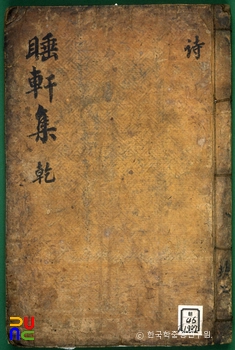 詩
睡軒集 乾
© 한국학중앙연구원